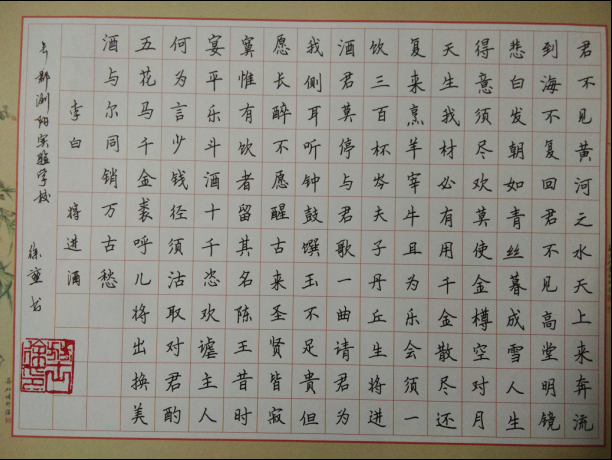 君不见黄河之水天上来奔流
到海不复回君不见高堂明镜
悲白发朝如青丝暮成雪人生
得意须尽欢莫使金樽空对月
天生我材必有用千金散尽还
复来烹羊宰牛且为乐会须一
饮三百杯岑夫子丹丘生将进
酒君莫停与君歌一曲请君为
我侧耳听钟鼓馔玉不足贵但
愿长醉不愿醒古来圣贤皆寂
寞惟有饮者留其名陈王昔时
宴平乐斗酒十千恣欢谑主人
何为言少钱径须沽取对君酌
五花马千金裘呼儿将出换美
酒与尔同销万古愁
李白 将进酒
浏阳实验学校